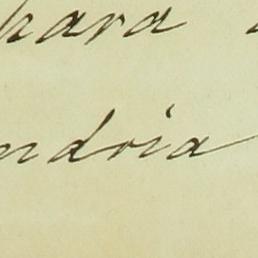 para
ndria